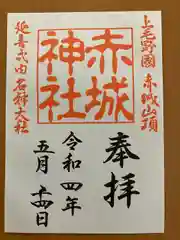 上毛野國 赤城山頂
奉拝
赤城神社
令和四年
五月二十四日
延喜式内 名神大社